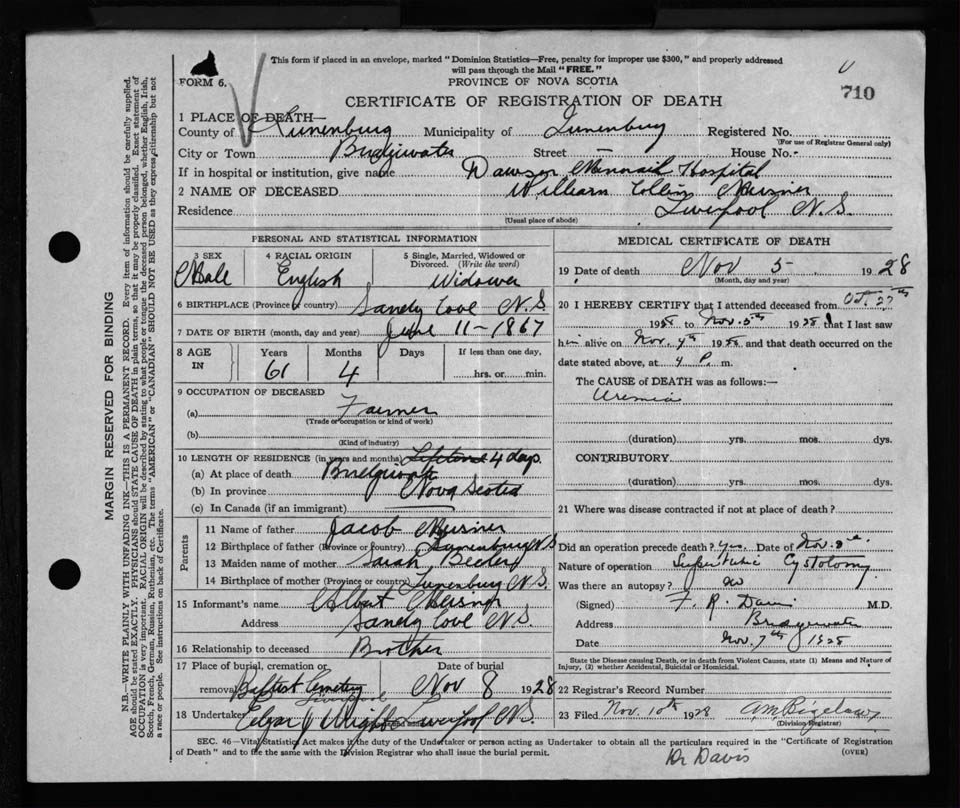 This form if placed in an envelope, marked "Dominion Statistics—Free, penalty for improper use $300," and properly addressed
will pass through the Mail "FREE."
FORM 6.
PROVINCE OF NOVA SCOTIA
710
CERTIFICATE OF REGISTRATION OF DEATH
1 PLACE OF DEATH—
County of Lunenburg Municipality of Lunenburg Registered No.
(For use of Registrar General only)
City or Town Bridgewater Street — House No.-
If in hospital or institution, give name Dawson Memorial Hospital
2 NAME OF DECEASED William Collin Meisner
Residence Liverpool N.S.
(Usual place of abode)
PERSONAL AND STATISTICAL INFORMATION
3 SEX 4 RACIAL ORIGIN 5 Single, Married, Widowed or Divorced. (Write the word)
Male English Widower
6 BIRTHPLACE (Province or country) Sandy Cove N.S.
7 DATE OF BIRTH (month, day and year) June 11-1867
8 AGE IN Years Months Days If less than one day,
61 4 hrs. or min.
9 OCCUPATION OF DECEASED
(a) Farmer
(Trade or occupation or kind of work)
(b)
(Kind of industry)
10 LENGTH OF RESIDENCE (in years and months) Lifetime 4 days.
(a) At place of death Bridgewater
(b) In province Nova Scotia
(c) In Canada (if an immigrant)
Parents
11 Name of father Jacob Meisner
12 Birthplace of father (Province or country) Lunenburg N.S.
13 Maiden name of mother Sarah
14 Birthplace of mother (Province or country) Lunenburg N.S.
15 Informant's name Albert Meisner
Address Sandy Cove N.S.
16 Relationship to deceased Brother
17 Place of burial, cremation or removal Date of burial
Baptist Cemetery Nov 8 1928
Liverpool
18 Undertaker Elgar J Wright Liverpool N.S.
MEDICAL CERTIFICATE OF DEATH
19 Date of death Nov 5 1928
(Month, day and year)
20 I HEREBY CERTIFY that I attended deceased from Oct. 27th
1928 to Nov. 5th 1928 that I last saw
him alive on Nov. 4th 1928 and that death occurred on the
date stated above, at 4 P. m.
The CAUSE of DEATH was as follows:—
Uremia
(duration) yrs. mos. dys.
CONTRIBUTORY.
(duration) yrs. mos. dys.
21 Where was disease contracted if not at place of death?
Did an operation precede death? yes. Date of Nov.
Nature of operation Suprapubic Cystotomy
Was there an autopsy? no
(Signed) F. R. Davis M.D.
Address Bridgewater
Date Nov. 7th 1928
State the Disease causing Death, or in death from Violent Causes, state (1) Means and Nature of
Injury, (2) whether Accidental, Suicidal or Homicidal.
22 Registrar's Record Number
23 Filed Nov. 10th 1928 A M Bigelow
(Division Registrar)
SEC. 46—Vital Statistics Act makes it the duty of the Undertaker or person acting as Undertaker to obtain all the particulars required in the "Certificate of Registration
of Death" and to file the same with the Division Registrar who shall issue the burial permit. (OVER)
Dr Davis
MARGIN RESERVED FOR BINDING
N.B.—WRITE PLAINLY WITH UNFADING INK—THIS IS A PERMANENT RECORD. Every item of information should be carefully supplied.
AGE should be stated EXACTLY. PHYSICIANS should STATE CAUSE OF DEATH in plain terms, so that it may be properly classified. Exact statement of
OCCUPATION is very important. RACIAL ORIGIN will be described by stating to what people or tongue the deceased person belonged, whether English, Irish,
Scotch, French, German, Russian, Ruthenian, etc. The terms "AMERICAN" or "CANADIAN" SHOULD NOT BE USED as they express citizenship but not
a race or people. See instructions on back of Certificate.